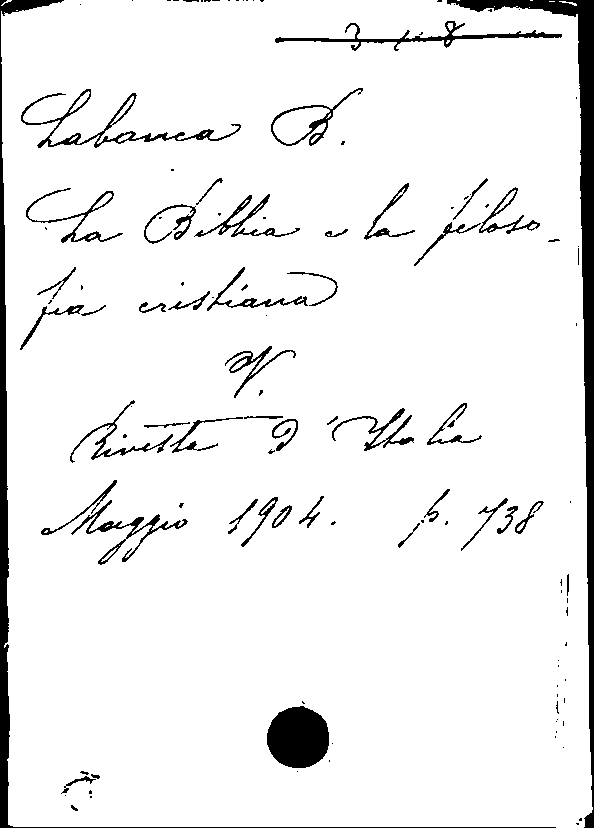 Labanca B.
La Bibbia e la filoso-
fia cristiana
V.
Rivista d'Italia
Maggio 1904. p. 738